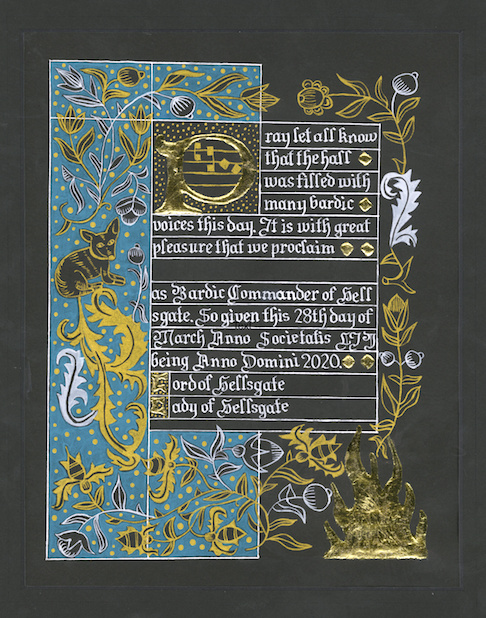 Pray let all know
that the hall
was filled with
many bardic
voices this day. It is with great
pleasure that we proclaim
as Bardic Commander of Hell
sgate. So given this 28th day of
March Anno Societatis LIV
being Anno Domini 2020.
Lord of Hellsgate
Lady of Hellsgate